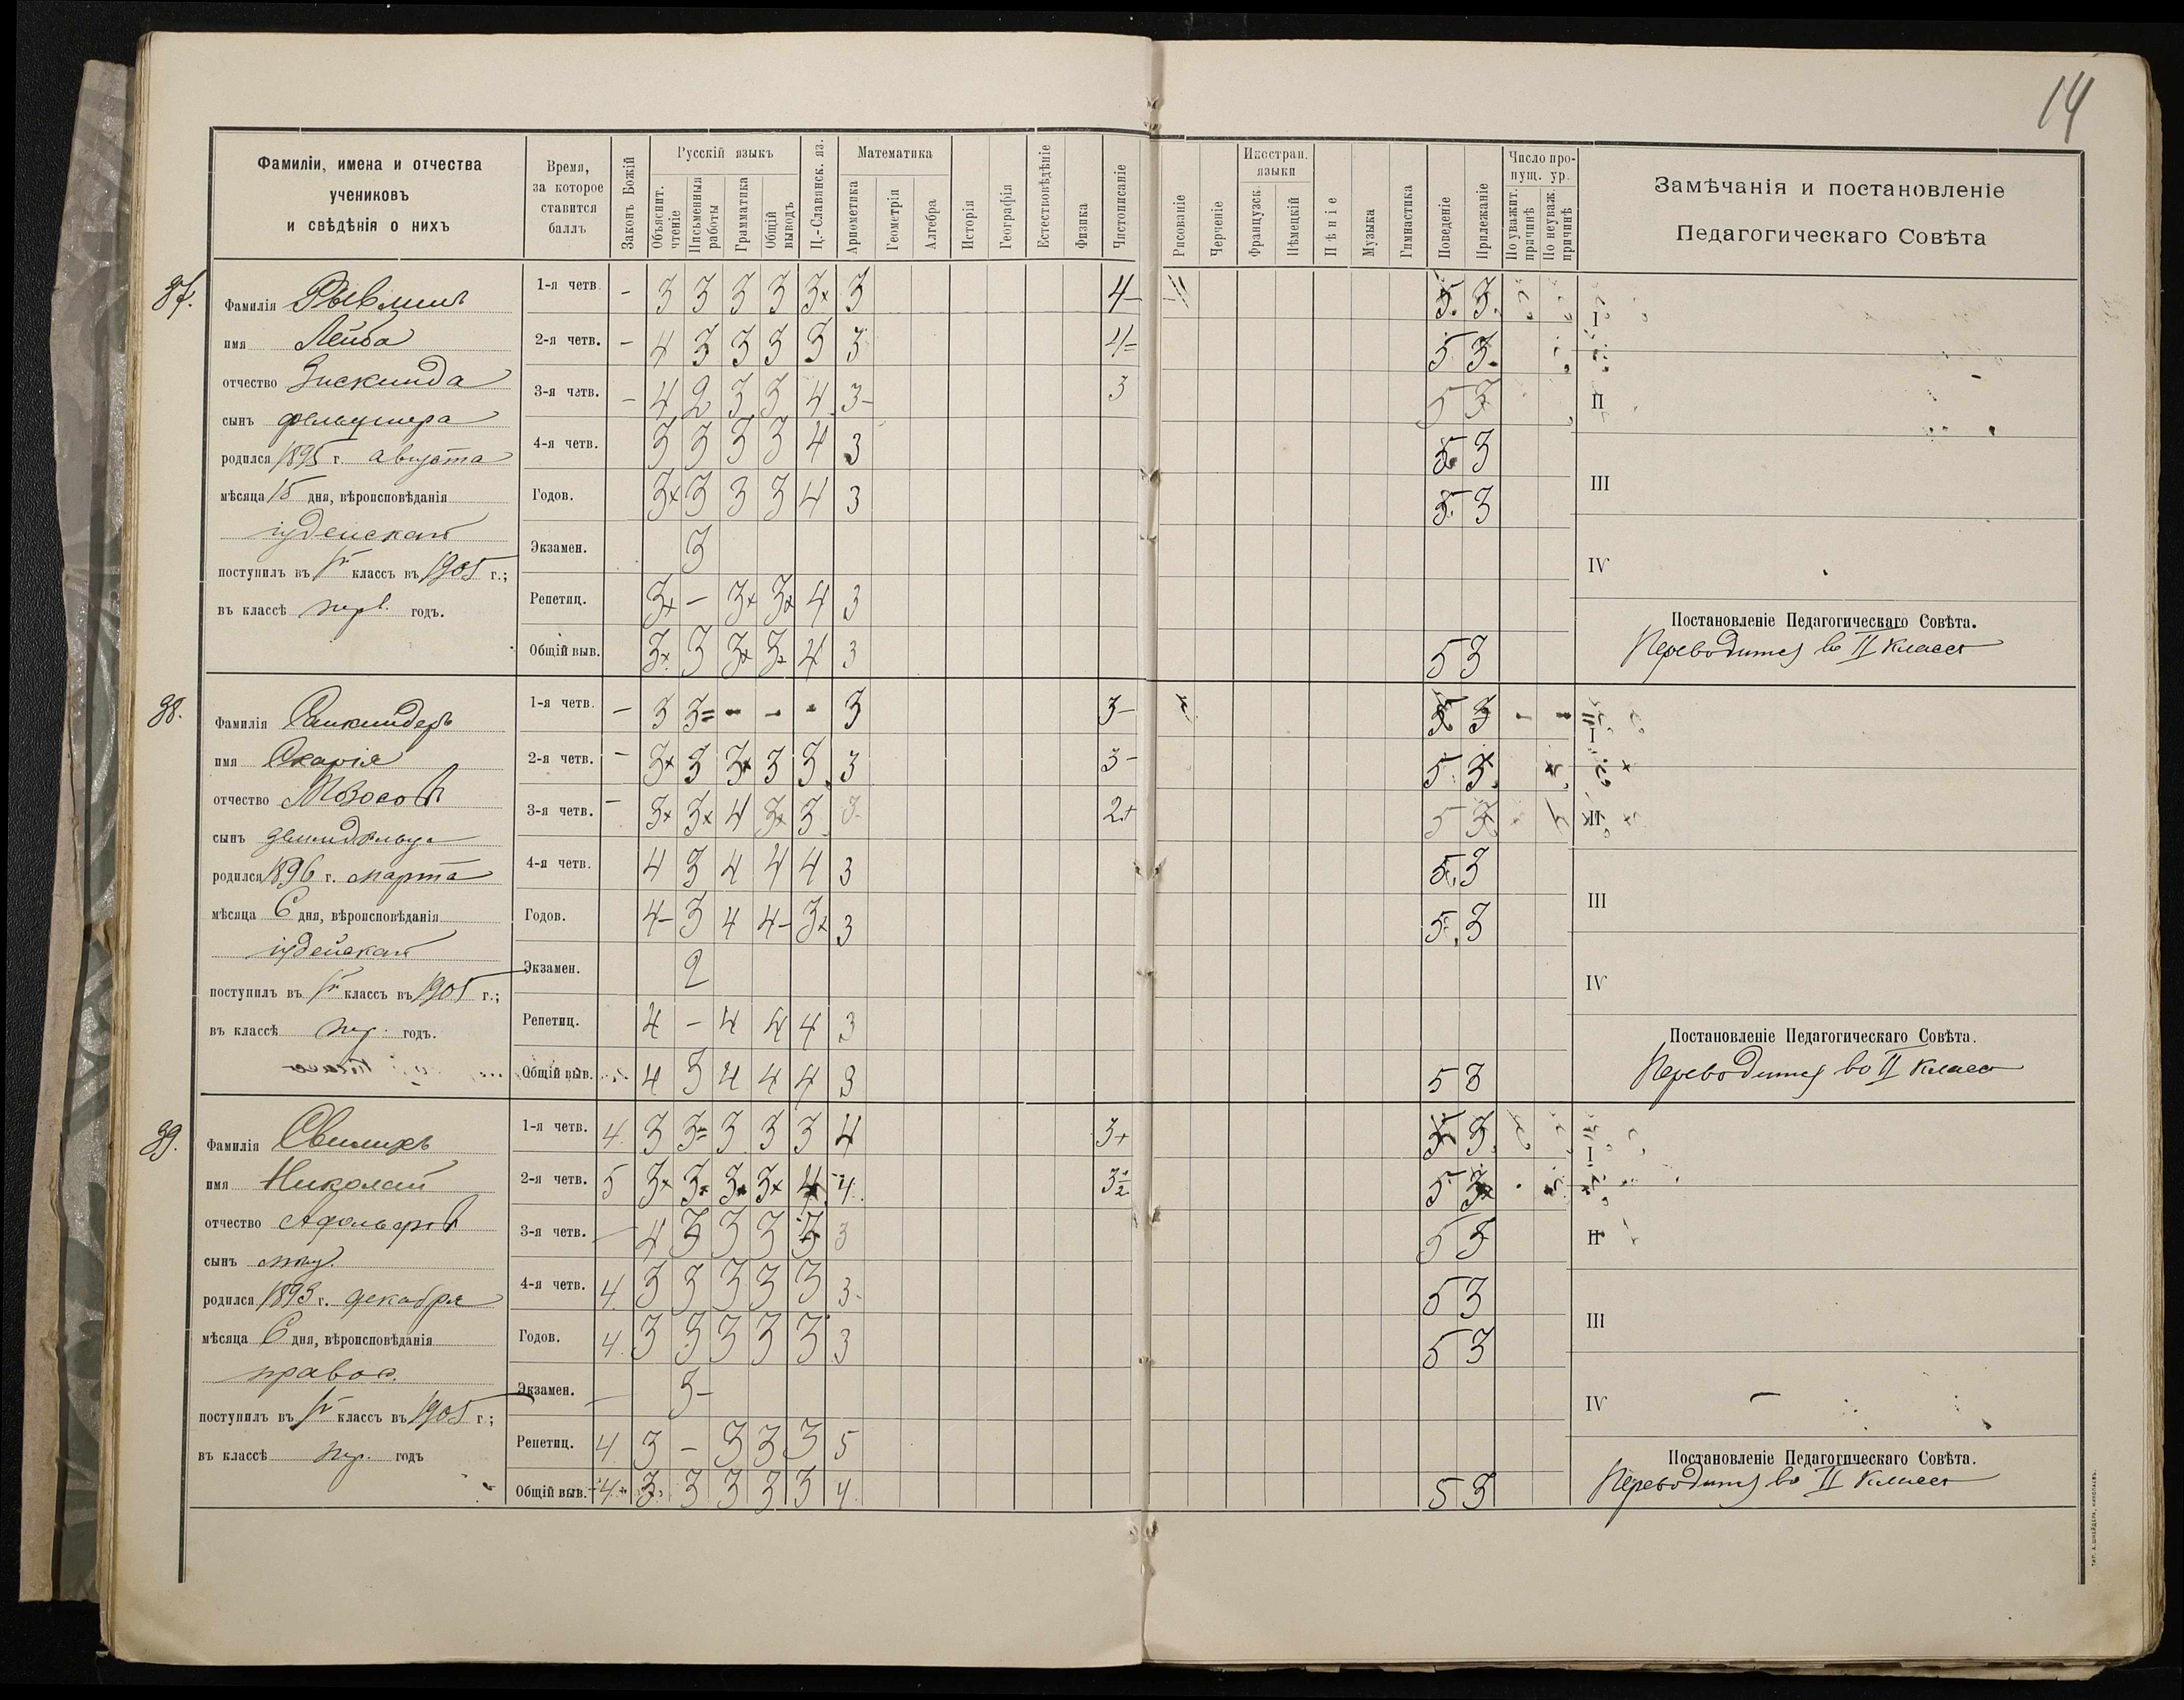 14
Фамиліи, имена и отчества
учениковъ
и свѣдѣнія о нихъ
Время,
за которое
ставится
баллъ
Законъ Божій
Русскій языкъ
Объяснит.
чтеніе
Письменныя
работы
Грамматика
Общій
выводъ
Ц.-Славянск. яз.
Математика
Ариѳметика
Геометрія
Алгебра
Исторія
Географія
Естествовѣдѣніе
Физика
Чистописаніе
Рисованіе
Черченіе
Иностран.
языки
Французск.
Нѣмецкій
Пѣніе
Музыка
Гимнастика
Поведеніе
Прилежаніе
Число про-
пущ. ур.
По уважит.
причинѣ
По неуваж.
причинѣ
Замѣчанія и постановленіе
Педагогическаго Совѣта
37.
Фамилія
имя Лейба
отчество Зискинда
сынъ фельдшера
родился 1895 г. августа
мѣсяца 15 дня, вѣроисповѣданія
іудейскаго
поступилъ въ Iй классъ въ 1905 г.;
въ классѣ перв. годъ.
1-я четв. – 3 3 3 3 3+ 3 4– 5 3
2-я четв. – 4 3 3 3 3 3 4= 5 3
3-я четв. – 4 2 3 3 4 3– 3 5 3
4-я четв. 3 3 3 3 4 3 5 3
Годов. 3+ 3 3 3 4 3 5 3
Экзамен. 3
Репетиц. 3+ – 3+ 3+ 4 3
Общій выв. 3+ 3 3+ 3+ 4 3 5 3
I
II
III
IV
Постановленіе Педагогическаго Совѣта.
Переводится во II классъ
38.
Фамилія
имя
отчество
сынъ
родился 1896 г. марта
мѣсяца 6 дня, вѣроисповѣданія
іудейскаго
поступилъ въ Iй классъ въ 1905 г.;
въ классѣ пер. годъ.
1-я четв. – 3 3= – – – 3 3– 5 3
2-я четв. – 3+ 3 3+ 3 3 3 3– 5 3
3-я четв. – 3+ 3+ 4 3+ 3 3– 2+ 5 3
4-я четв. 4 3 4 4 4 3 5 3
Годов. 4– 3 4 4– 3+ 3 5 3
Экзамен. 2
Репетиц. 4 – 4 4 4 3
Общій выв. 4 3 4 4 4 3 5 3
I
II
III
IV
Постановленіе Педагогическаго Совѣта.
Переводится во II классъ
39.
Фамилія
имя Николай
отчество
сынъ
родился 1893 г. декабря
мѣсяца 6 дня, вѣроисповѣданія
правос.
поступилъ въ Iй классъ въ 1905 г.;
въ классѣ пер. годъ
1-я четв. 4 3 3= 3 3 3 4 3+ 5 3
2-я четв. 5 3+ 3+ 3+ 3+ 4 4 5 3
3-я четв. – 4 3 3 3 3 3 5 3
4-я четв. 4 3 3 3 3 3 3– 5 3
Годов. 4 3 3 3 3 3 3 5 3
Экзамен. – 3–
Репетиц. 4 3 – 3 3 3 5
Общій выв. 4 3 3 3 3 3 4 5 3
I
II
III
IV
Постановленіе Педагогическаго Совѣта.
Переводится во II классъ
ТИП. А. ШНЕЙДЕРА, НИКОЛАЕВЪ.